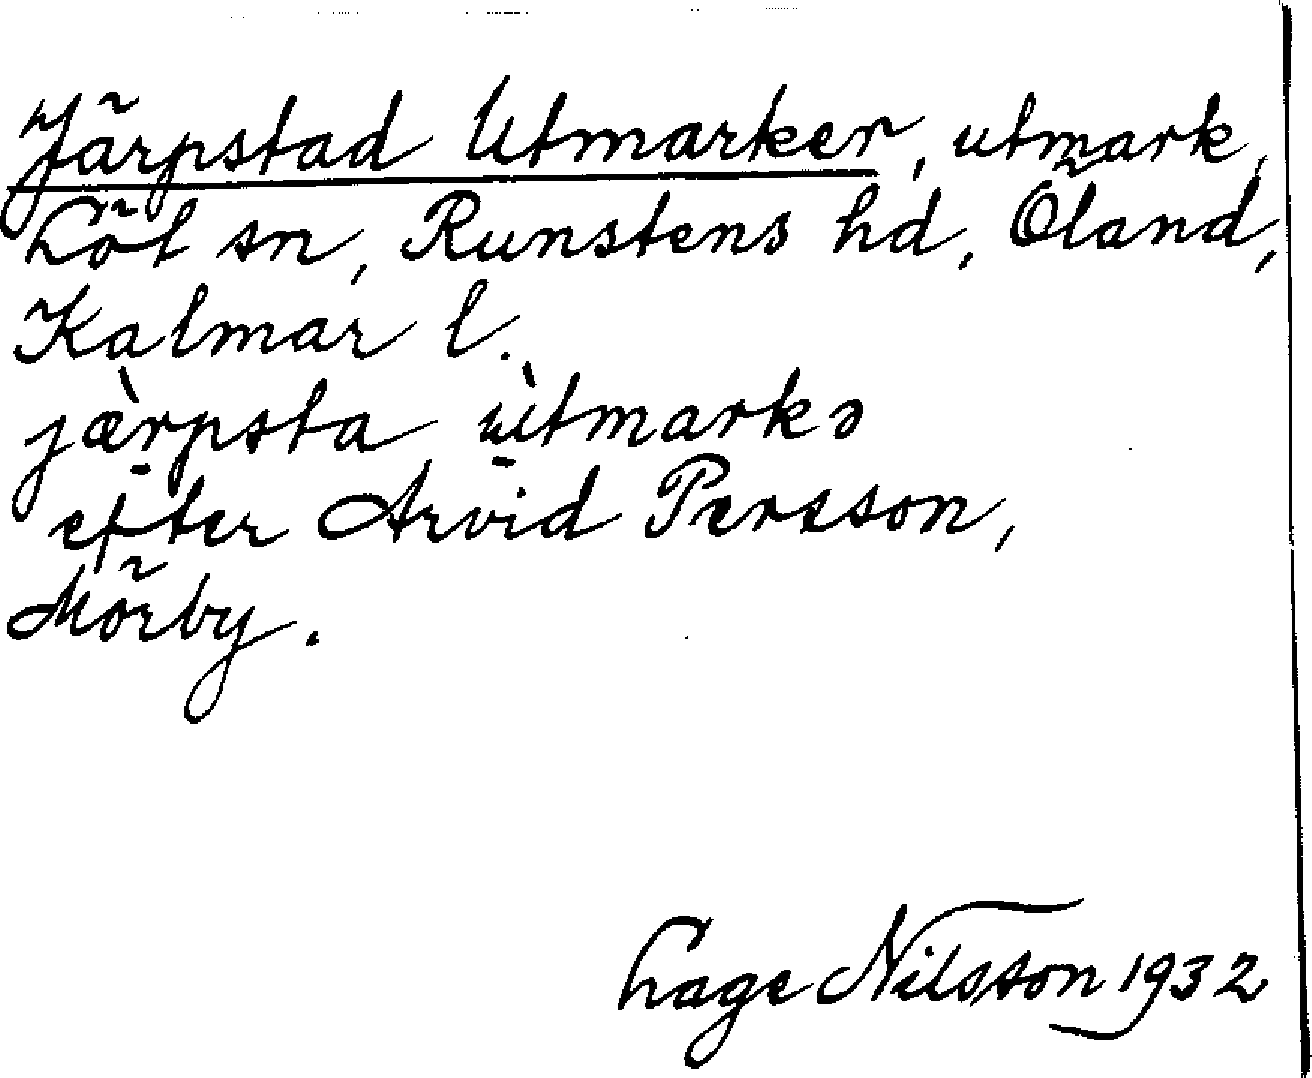 Järpstad Utmarker, utmark,
Löt sn, Runstens hd, Öland,
Kalmar l.
jæ̀rpsta ùtmarkə
efter Arvid Persson,
Mörby.
Lage Nilsson 1932